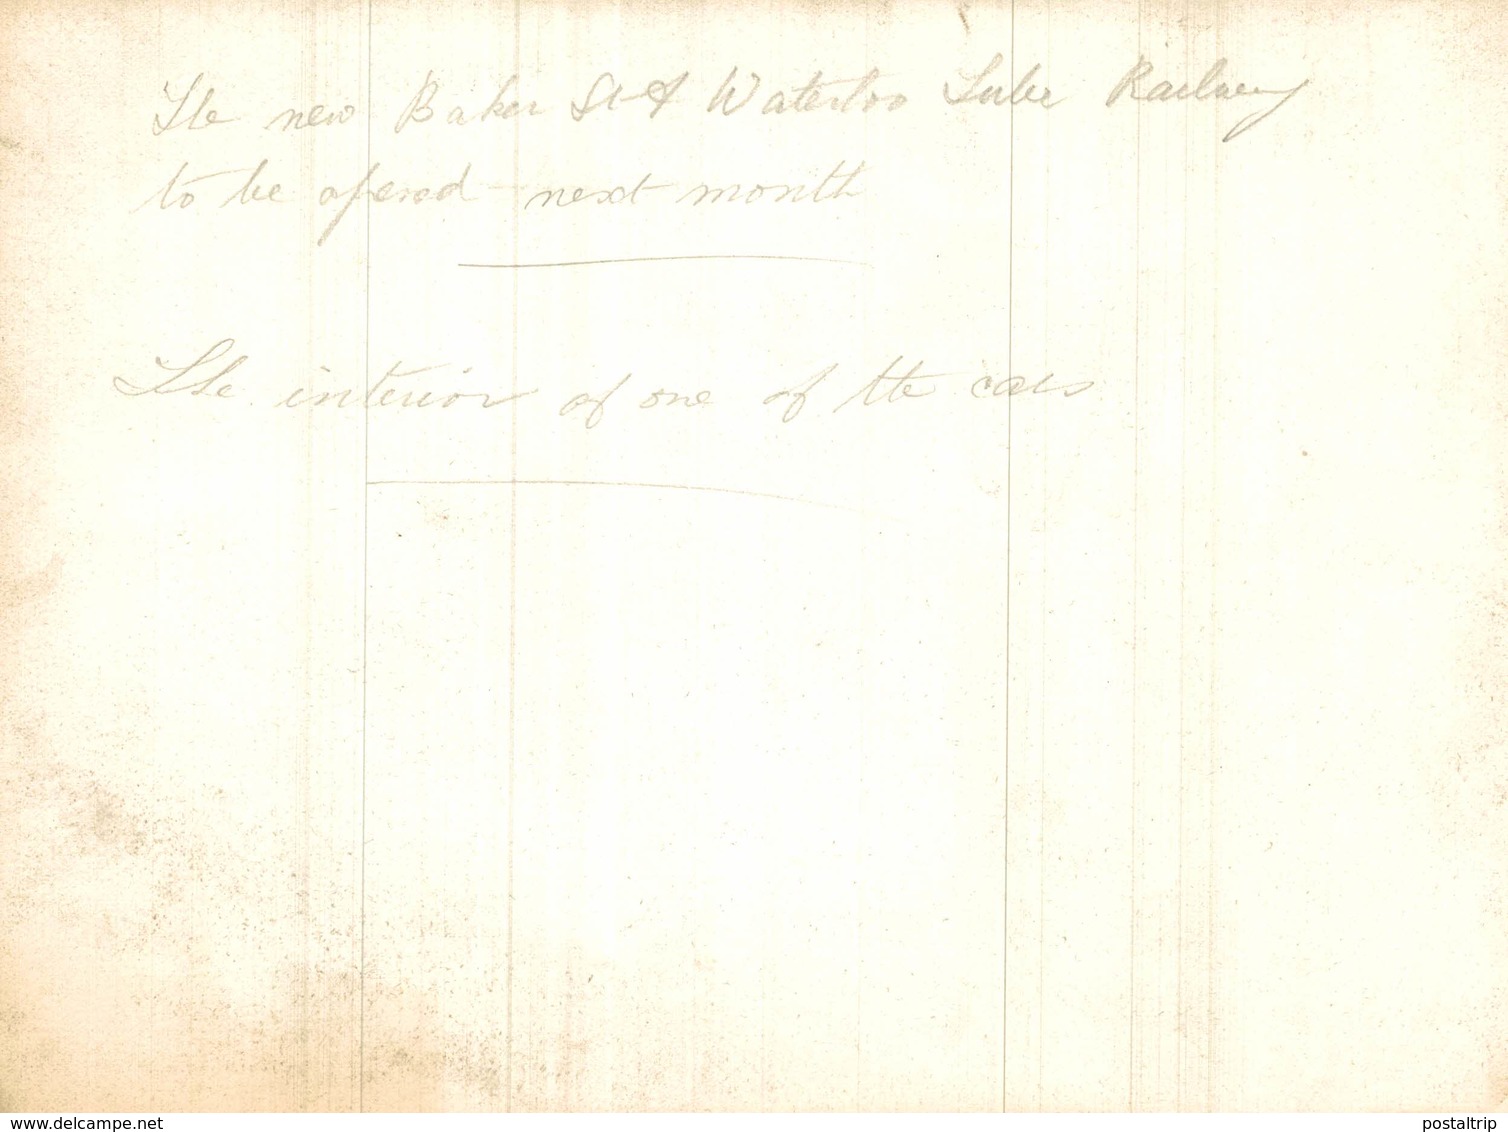 The new Baker St & Waterloo Tube Railway
to be opened next month
The interior of one of the cars
delcampe.net
postaltrip